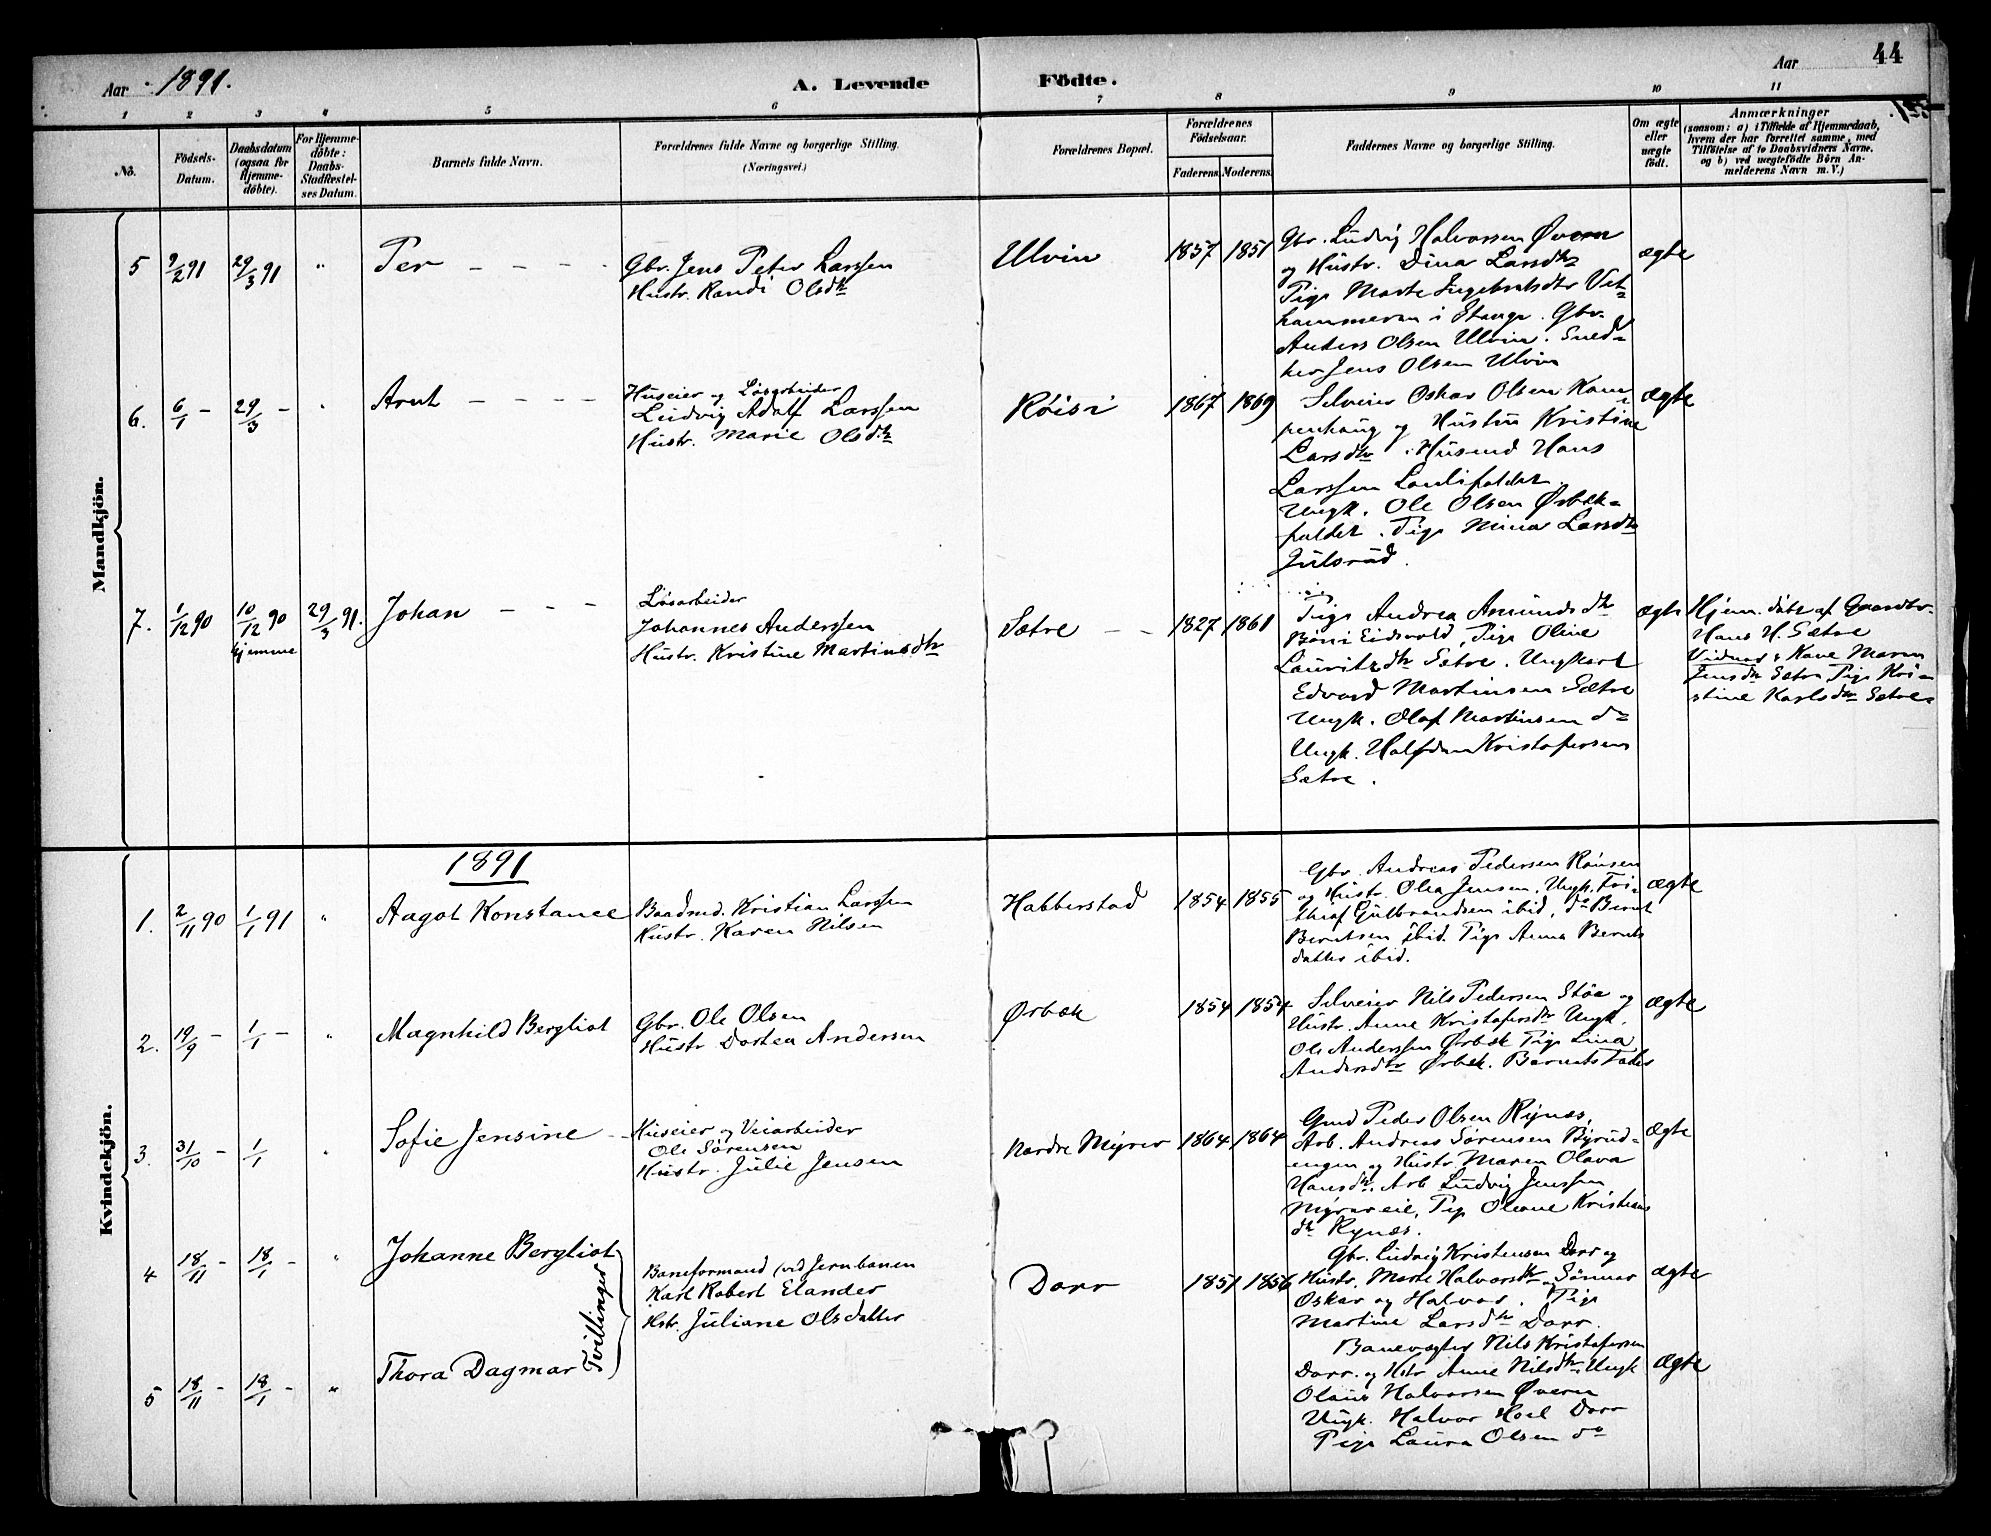 Aar 1891.
A. Levende
Födte.
Aar
44
1 2 3 4 5 6 7 8 9 10 11
No.
Födsels-Datum.
Daabsdatum (ogsaa for Hjemme-döbte).
For Hjemme-döbte: Daabs-Stadfæstel-ses Datum.
Barnets fulde Navn.
Forældrenes fulde Navne og borgerlige Stilling.
(Næringsvei.)
Forældrenes Bopæl.
Forældrenes Födselsaar.
Faderens. Moderens.
Faddernes Navne og borgerlige Stilling.
Om ægte eller uægte født.
Anmærkninger
(saasom: a) i Tilfælde af Hjemmedaab, hvem der har forrettet samme, med Tilföielse af to Daabsvidners Navne, og b) ved uægtefödte Börn An-melderens Navn m. V.)
Mandkjön.
5 9/2 91 29/3 91 " Per
Gbr. Jens Peter Larssen
Hustr. Randi Olsdtr
Ulvin 1857 1851
Gbr. Ludvig Halvorsen Øvern
og Hustr. Dina Larsdtr
Pige Marte Ingebretsdtr Vet-
hammeren i Stange. Gbr.
Anders Olsen Ulvin. Sned-
ker Jens Olsen Ulvin
ægte
6. 6/1 - 29/3 - " Arnt
Huseier og Løsarbeider
Ludvig Adolf Larssen
Hustr. Marie Olsdtr
Røisi 1867 1869
Selveier Oskar Olsen Kam-
penhaug og Hustru Kristine
Larsdtr. Husmd Hans
Larssen
Ungk. Ole Olsen Ørbæk-
faldet. Pige Mina Larsdtr
Julsrud.
ægte
7. 1/12 90 10/12 90 hjemme 29/3 91. Johan
Løsarbeider
Johannes Anderssen
Hustr. Kristine Martinsdtr
Sætre 1827 1861
Pige Andrea Amundsdtr
Bøni Eidsvold, Pige Oline
Lauritzdtr Sætre. Ungkarl
Edvard Martinsen Sætre
Ungk. Olaf Martinsen do
Ungk. Halfdan Kristofersen
Sætre.
ægte
Hjem. døbt af Gaardbr.
Hans H. Sætre
Vidner: Kone Maren
Jensdtr Sætre Pige Kri-
stine Karlsdtr Sætre
Kvindekjön.
1891
1. 2/11 90 1/1 91 " Aagot Konstance
Baadmd. Kristian Larssen
Hustr. Karen Nilsen
Habberstad 1854 1855
Gbr. Andreas Pedersen
og Hustr. Olea Jensen. Ungk. Fri-
thjof Gulbrandsen ibid, do Bernt
Berntsen ibid. Pige Anna Bernts
datter ibid.
ægte
2. 19/9 - 1/1 - " Magnhild Bergliot
Gbr. Ole Olsen
Hustr Dortea Andersen
Ørbæk 1854 1854
Selveier Nils Pedersen Støa og
Hustr. Anne Kristofersdtr Ungk.
Ole Anderssen Ørbæk Pige Lina
Andersdtr Ørbæk. Barnets Fader
ægte
3. 31/10 - 1/1 " Sofie Jensine
Huseier og Veiarbeider
Ole Sørensen
Hustr. Julie Jensen
Nordre Myrer 1864 1864
Gmd Peder Olsen Rynæs,
Arb. Andreas Sørensen Byrud-
engen og Hustr. Maren Olava
Hansdtr. Arb Ludvig Jenssen
Myrereie, Pige Oleane Kristians
dtr Rynæs.
ægte
4 18/11 - 18/1 - " Johanne Bergliot
Tvillinger
Baneformand (ved Jernbanen
Karl Robert Elander
Hstr. Juliane Olsdatter
Dorr 1851 1856
Gbr. Ludvig Kristensen Dorr og
Hustr. Marte Halvorsdtr. Sønner
Oskar og Halvor. Pige
Martine Larsdtr Dorr.
ægte
5 18/11 - 18/1 - " Thora Dagmar
Banevogter Nils Kristofersen
Dorr. og Hstr Anne Nilsdtr. Ungk
Olaus Halvorsen Øvern
Ungk. Halvor Hoel Dorr
Pige Laura Olsen do
ægte